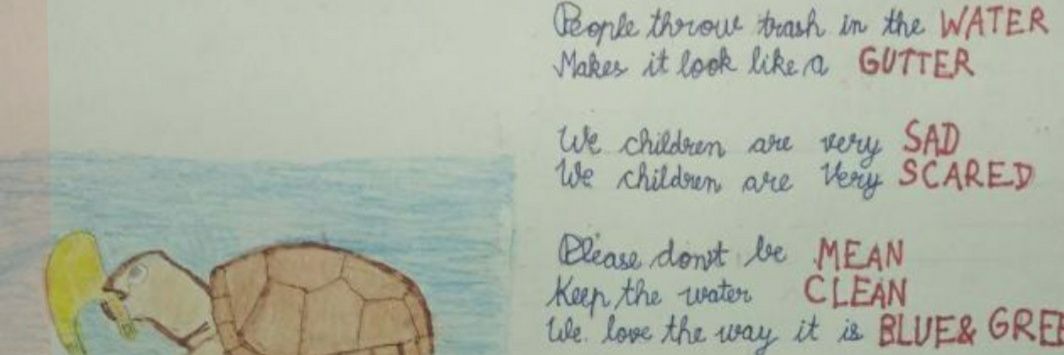 People throw trash in the WATER
Makes it look like a GUTTER
We children are very SAD
We children are very SCARED
Please don't be MEAN
Keep the water CLEAN
We love the way it is BLUE & GREE